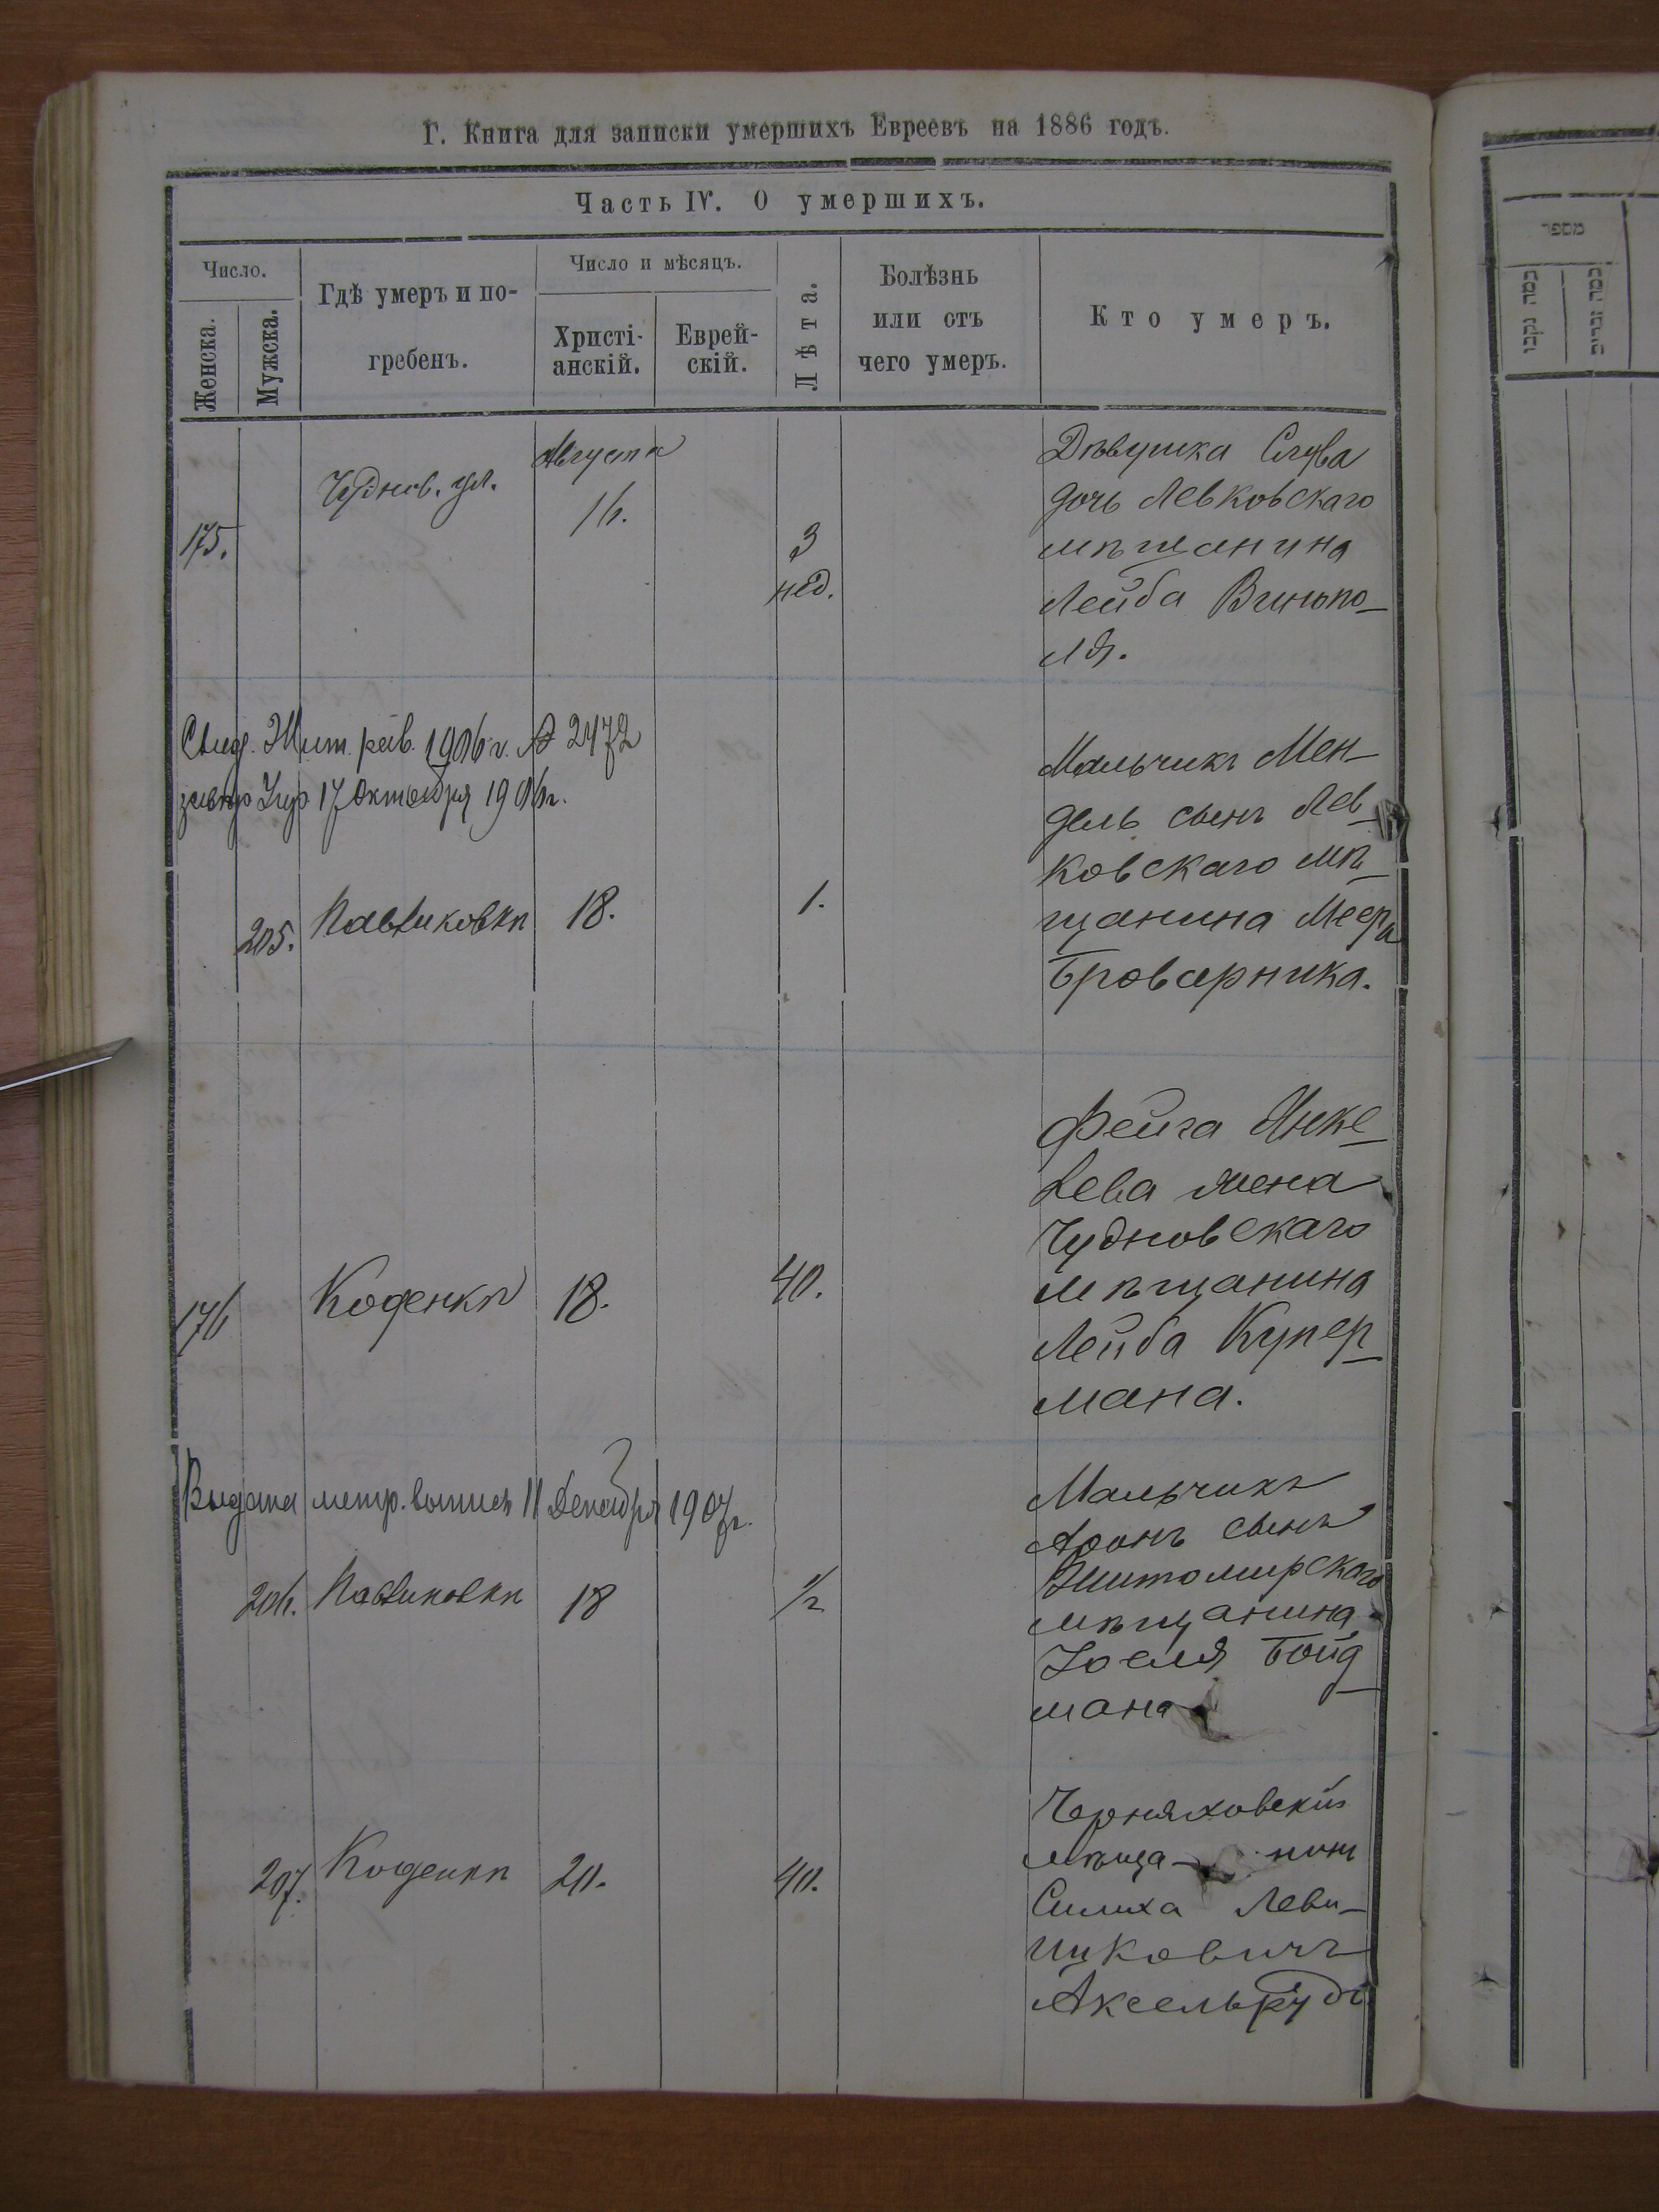 Г. Книга для записки умершихъ Евреевъ на 1886 годъ.
Часть IV. О умершихъ.
Число.
Женска.
Мужска.
Гдѣ умеръ и по-
гребенъ.
Число и мѣсяцъ.
Христі-
анскій.
Еврей-
скій.
Лѣта.
Болѣзнь
или отъ
чего умеръ.
Кто умеръ.
175.
Чуднов. ул.
Августа
16.
3
нед.
Дѣвушка Слува
дочь Левковскаго
мѣщанина
Лейба Винъпо-
ля.
Свид. Жит. рав. 1906 г. № 2472
17 Октября 1906г.
205.
Павликовкѣ
18.
1.
Мальчикъ Мен-
дель сынъ Лев-
ковскаго мѣ-
щанина Меера
Броварника.
176
Коденкѣ
18.
40.
Фейга Янке-
лева жена
Чудновскаго
мѣщанина
Лейба Купер-
мана.
Выдана метр. выпись 11 Декабря 1907г.
206.
Павликовкѣ
18
1/2
Мальчикъ
Аронъ сынъ
Житомирскаго
мѣщанина
Іоеля Бойд-
мана
207.
Коденкѣ
20.
40.
Черняховскій
мѣща- нинъ
Симха Леви-
Аксельрудъ
מספר